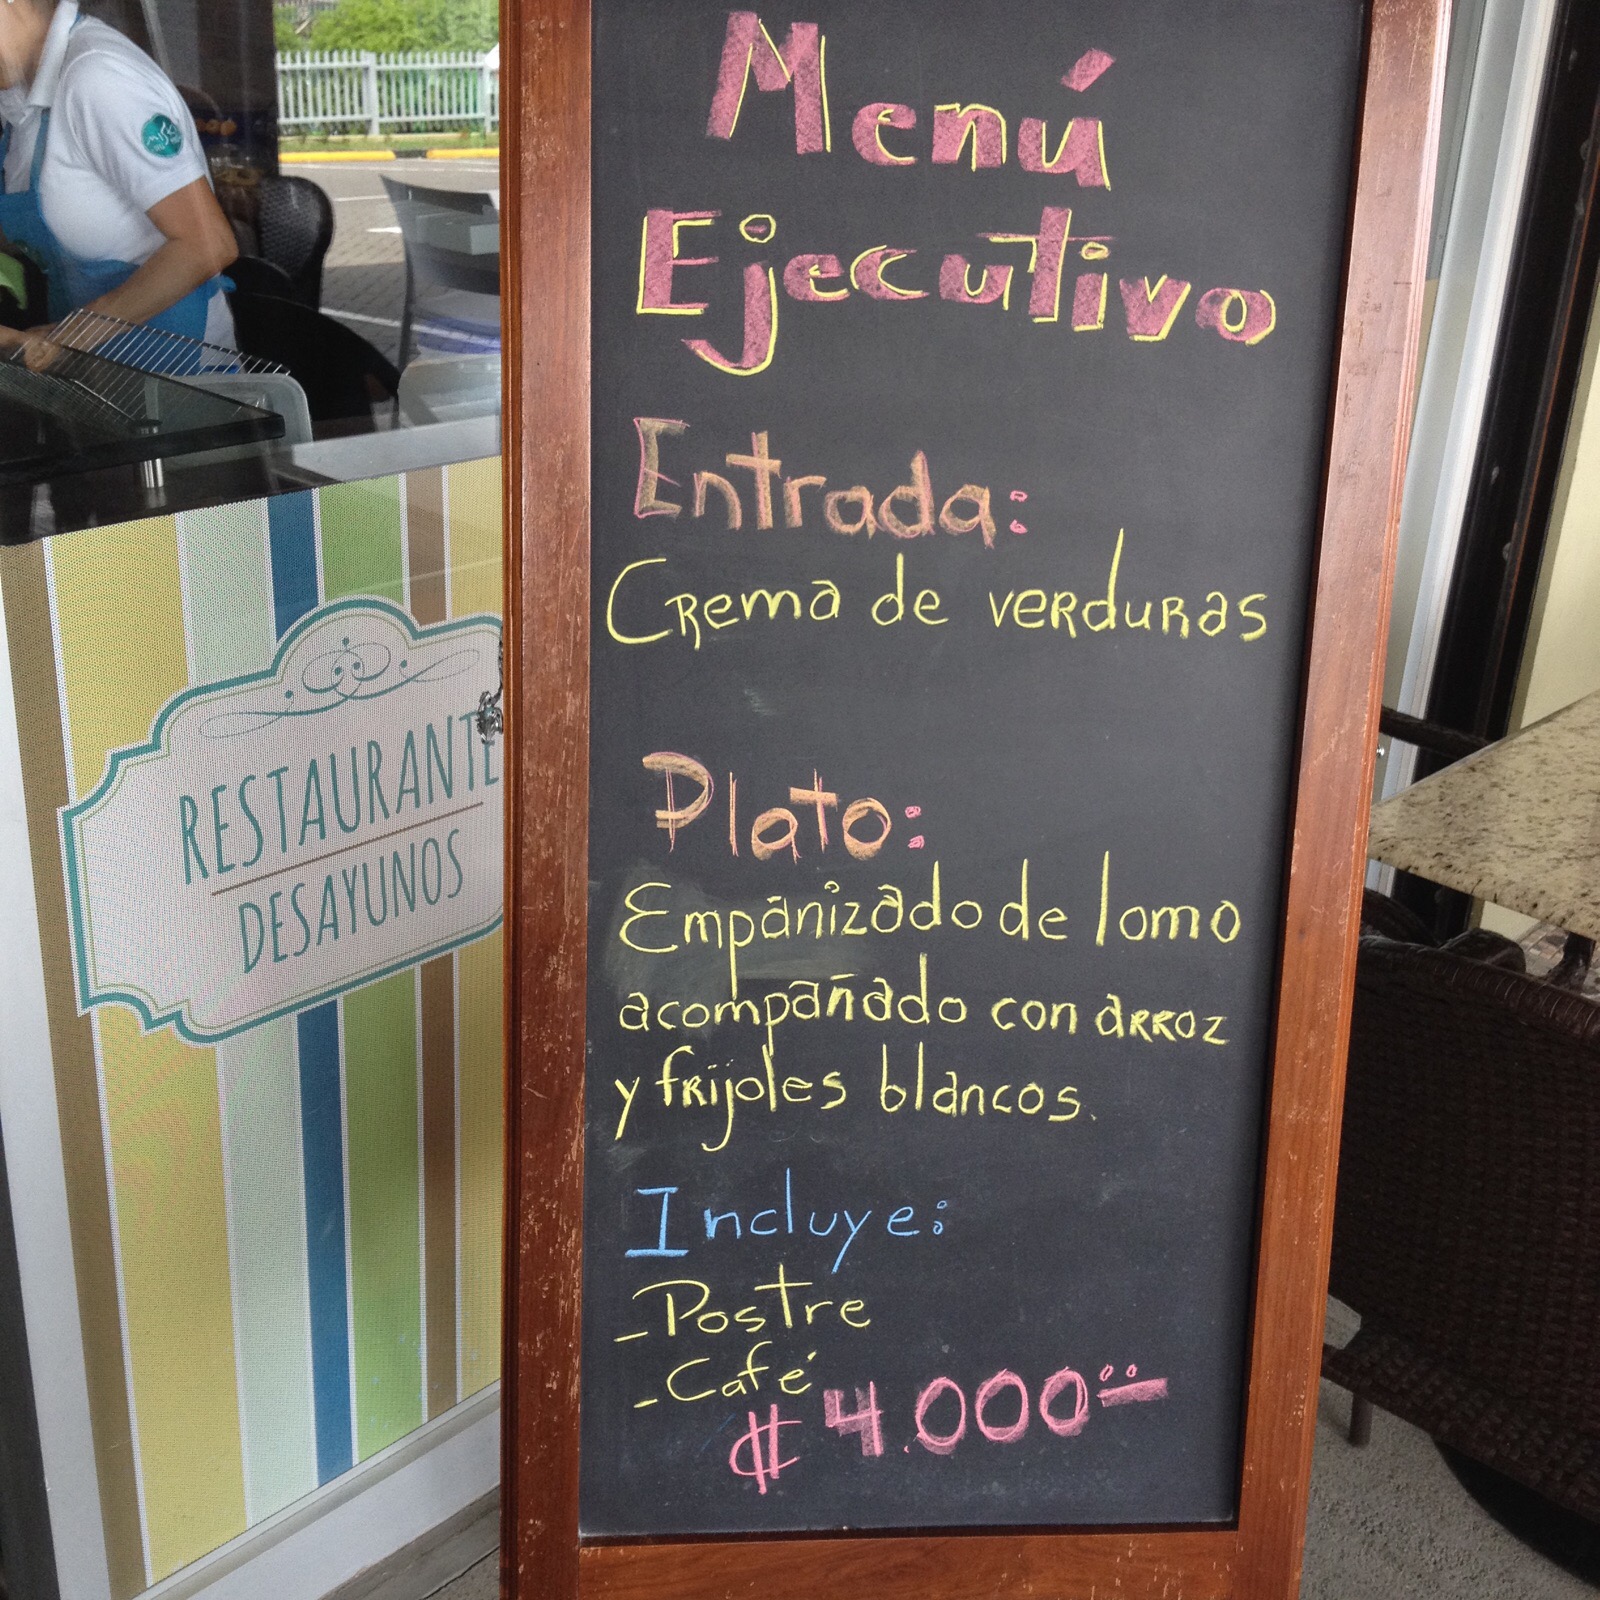 Menú
Ejecutivo
Entrada:
Crema de verduras
Plato:
Empanizado de lomo
acompañado con arroz
y frijoles blancos.
Incluye:
- Postre
- Café
₡ 4.000⁰⁰
RESTAURANTE
DESAYUNOS